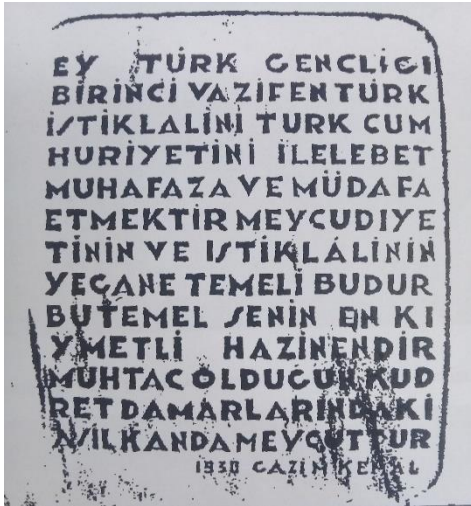 EY TÜRK GENÇLİĞİ
BİRİNCİ VAZİFEN TÜRK
İSTİKLALİNİ TÜRK CUM
HURİYETİNİ İLELEBET
MUHAFAZA VE MÜDAFA
ETMEKTİR MEVCUDİYE
TİNİN VE ISTİKLÁLİNİN
YEGANE TEMELİ BUDUR
BU TEMEL SENİN EN KI
YMETLİ HAZİNENDİR
MUHTAC OLDUGUN KUD
RET DAMARLARINDAKİ
ASIL KANDA MEVCUTDUR
1930 GAZİ M KEMAL